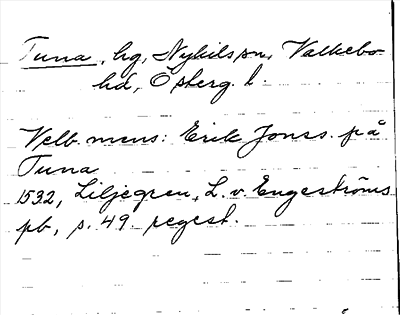 Tuna, hg, Nykils sn, Valkebo
hd, Österg. l.
Velb. mens: Erik Jonss. på
Tuna
1532, Liljegren, L. v. Engeströms
pb, s. 49 regest.